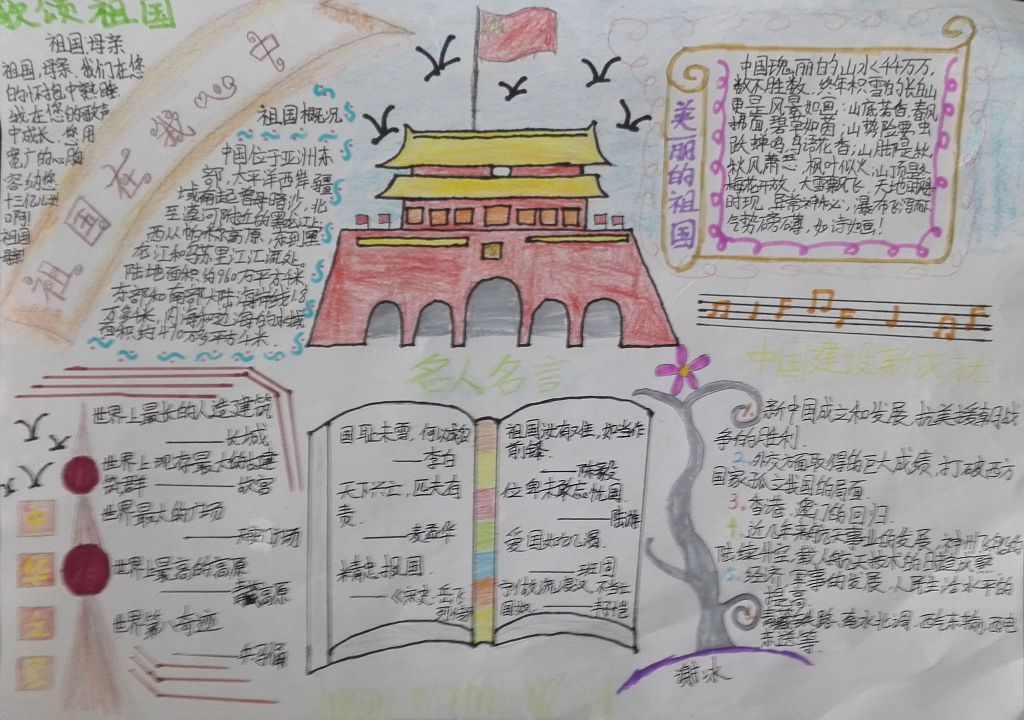 歌颂祖国
祖国,母亲
祖国,母亲,我们在您
的怀抱中熟睡
我在您的歌声
中成长.您用
宽广的心胸
容纳您
十三亿儿女
啊!
祖国
母亲!
祖国在我心中
祖国概况
中国位于亚洲东
部,太平洋西岸.疆
域南起曾母暗沙,北
至漠河附近的黑龙江上
西从帕米尔高原,东到黑
龙江和乌苏里江汇流处。
陆地面积约960万平方千米,
东部和南部大陆海岸线1.8
万多千米,内海和边海的水域
面积约470万多平方千米.
美丽的祖国
中国瑰丽的山水千千万万,
数不胜数,终年积雪的长白山
更是风景如画:山底若春,春风
拂面,碧草如茵;山势险要,虫
跃蝉鸣,鸟语花香;山腰间是秋,
秋风萧瑟,枫叶似火;山顶是冬
梅花开放,大雪飘飞,天地间随
时现,显希神秘,瀑布飞泻
气势磅礴,如诗如画!
名人名言
国耻未雪,何以成名
——李白
天下兴亡,匹夫有
责.
——麦孟华
精忠报国.
——《宋史·岳飞
列传》
祖国沒有难,如当作
前锋.
——陈毅
位卑未敢忘忧国.
——陆游
爱国如饥渴.
——班固
宁作故流浪汉,不当亡
国奴.
中国建设新成就
1.新中国成立和发展,抗美援朝战
争的胜利.
2.外交方面取得的巨大成绩,打破西方
国家孤立我国的局面.
3.香港、澳门的回归.
4.近几年来航天事业的发展,神州飞船的
陆续升空,载人航天技术的日趋成熟
5.经济、军事的发展,人民生活水平的
提高.
青藏铁路,南水北调,西气东输,西电
东送等.
世界上最长的人造建筑
——长城
世界上现存最大的古建
筑群——故宫
世界最大的广场
——天安门广场
世界上最高的高原
——青藏高原
世界第八奇迹
——兵马俑
中
华
之
最
谢冰